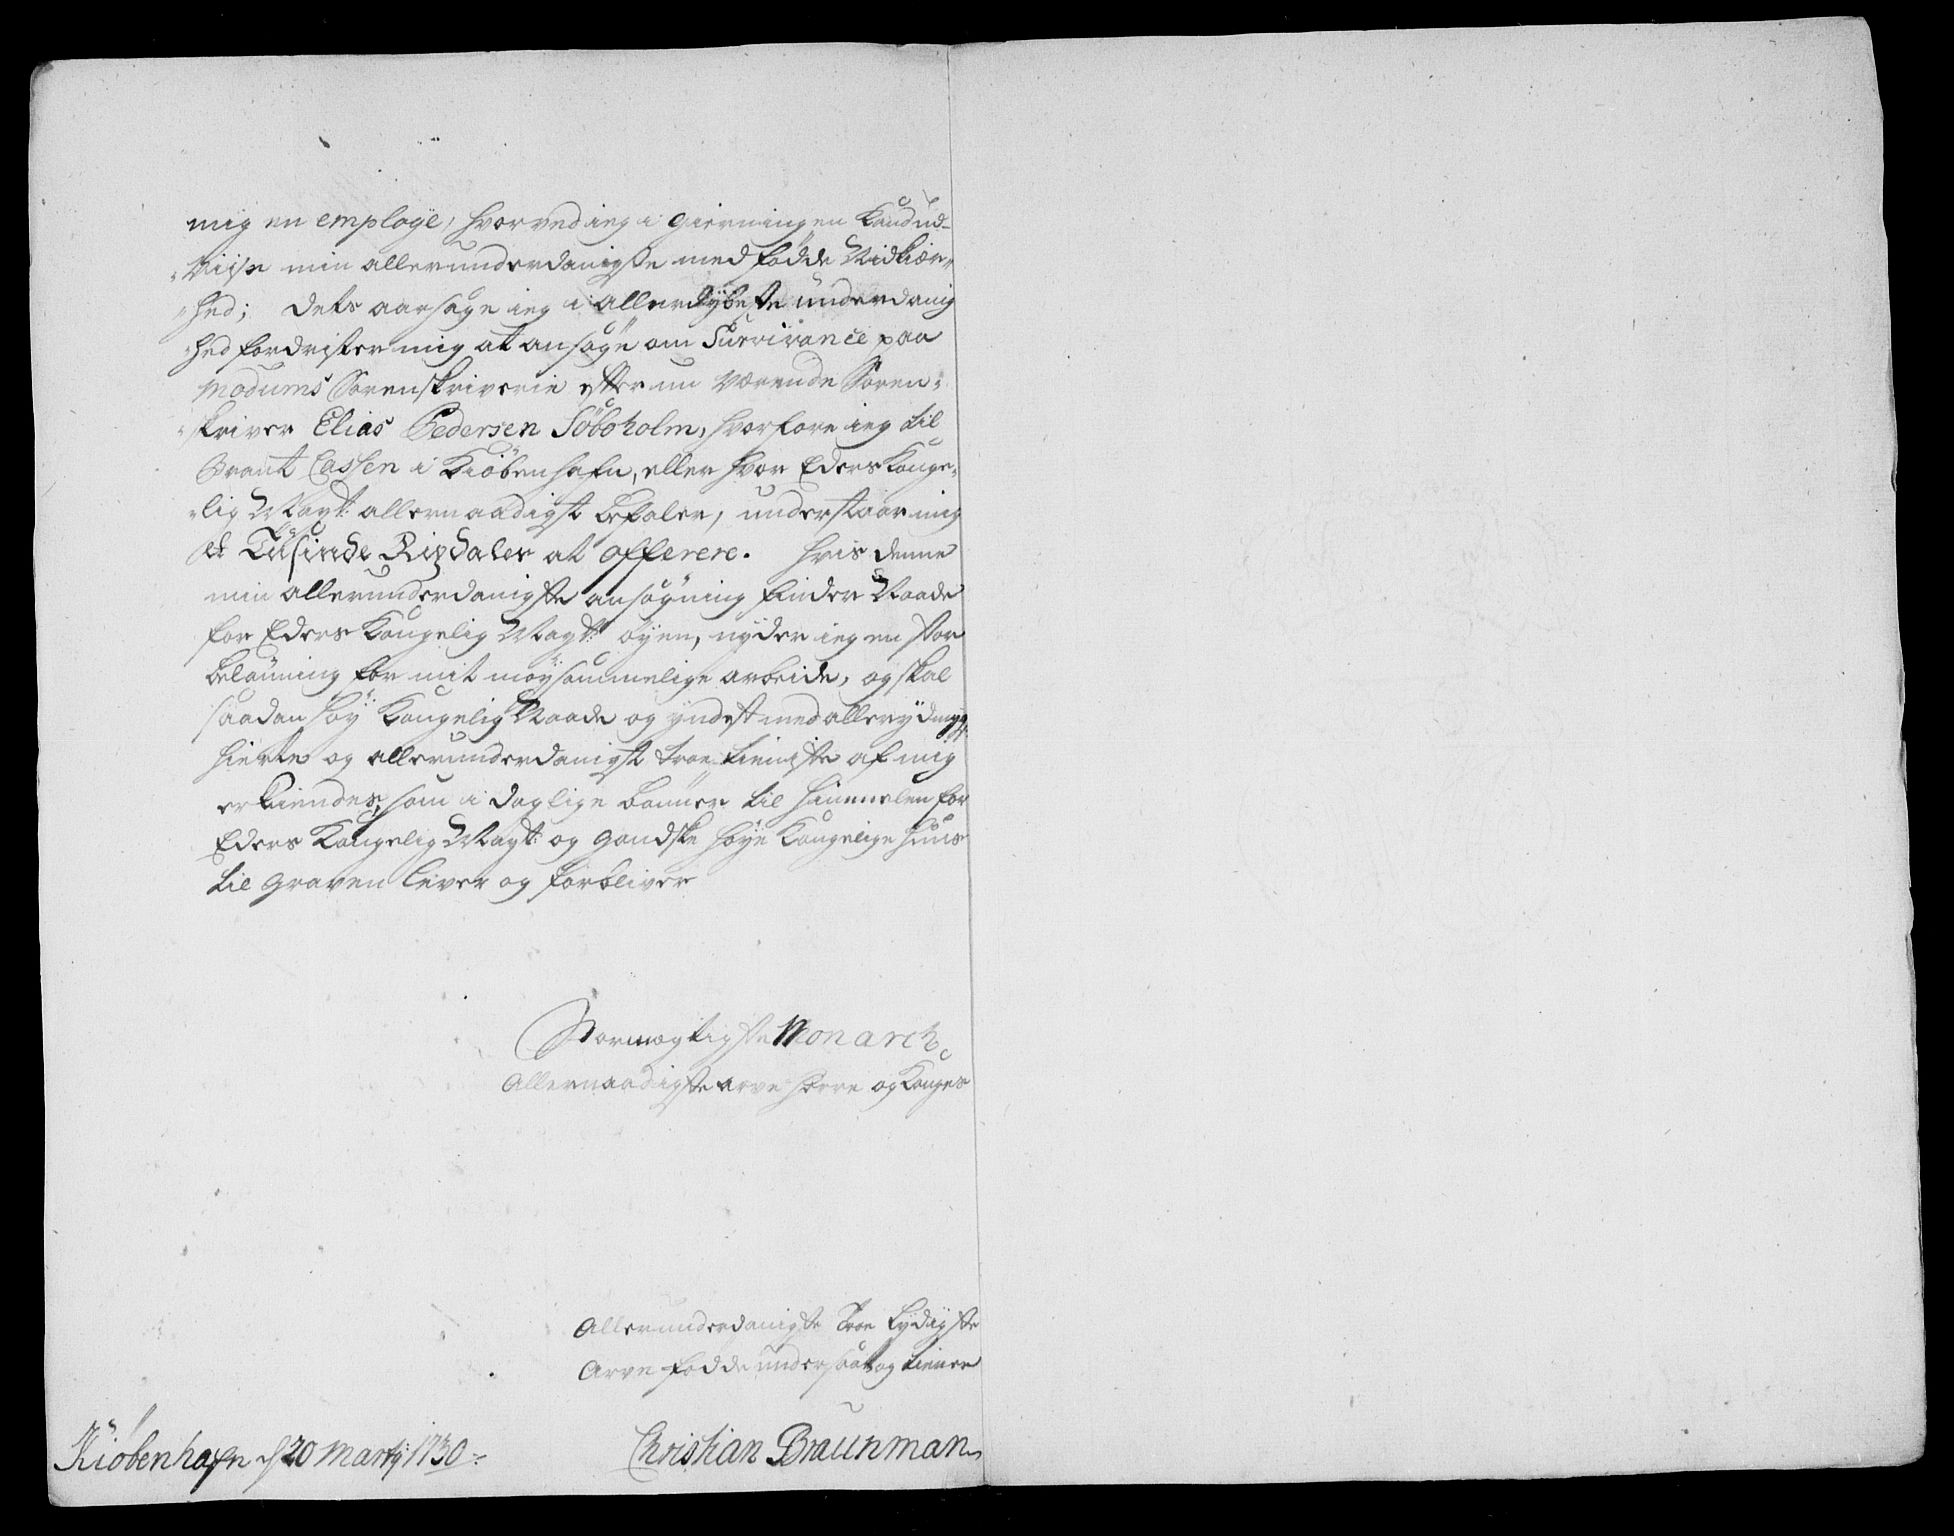 mig en employe, hvorved ieg i Gierningen kand ud-
-viise min allerunderdanigste medfødde Nidkiær-
-hed; dets aarsage ieg i allerdÿbeste underdanig
-hed fordrister mig at ansøge om Survivance paa
Modums Sorenskriverie efter nu værende Soren-
-skriver Elias Pedersen Söboholm, hvorfore ieg til
Qvæst Cassen i Kiöbenhafn, eller hvor Eders Konge-
-lig Mayt: allernaadigst befaler, understaar mig
et Tüsinde Rigdaler at offerere. Hvis denne
min allerunderdanigste ansøgning finder Naade
for Eders Kongelig Mayt: øyen, nyder ieg en stor
beløning for mit møysommelige arbeide, og skal
saadan høy Kongelig Naade og yndest med allerydmygst
hierte og allerunderdanigst troe tieniste af mig
erkiendes, som i daglige bønner til Himmelen for
Eders Kongelig Mayt: og gandske høye Kongelige Huus
til graven lever og forbliver
Stormægtigste Monarch
Allernaadigste arve Herre og Konges
Allerunderdanigste troe lydigste
Arve fødde undersaat og tiener
Kiöbenhafn d 20 Martÿ: 1730
Christian Braunman